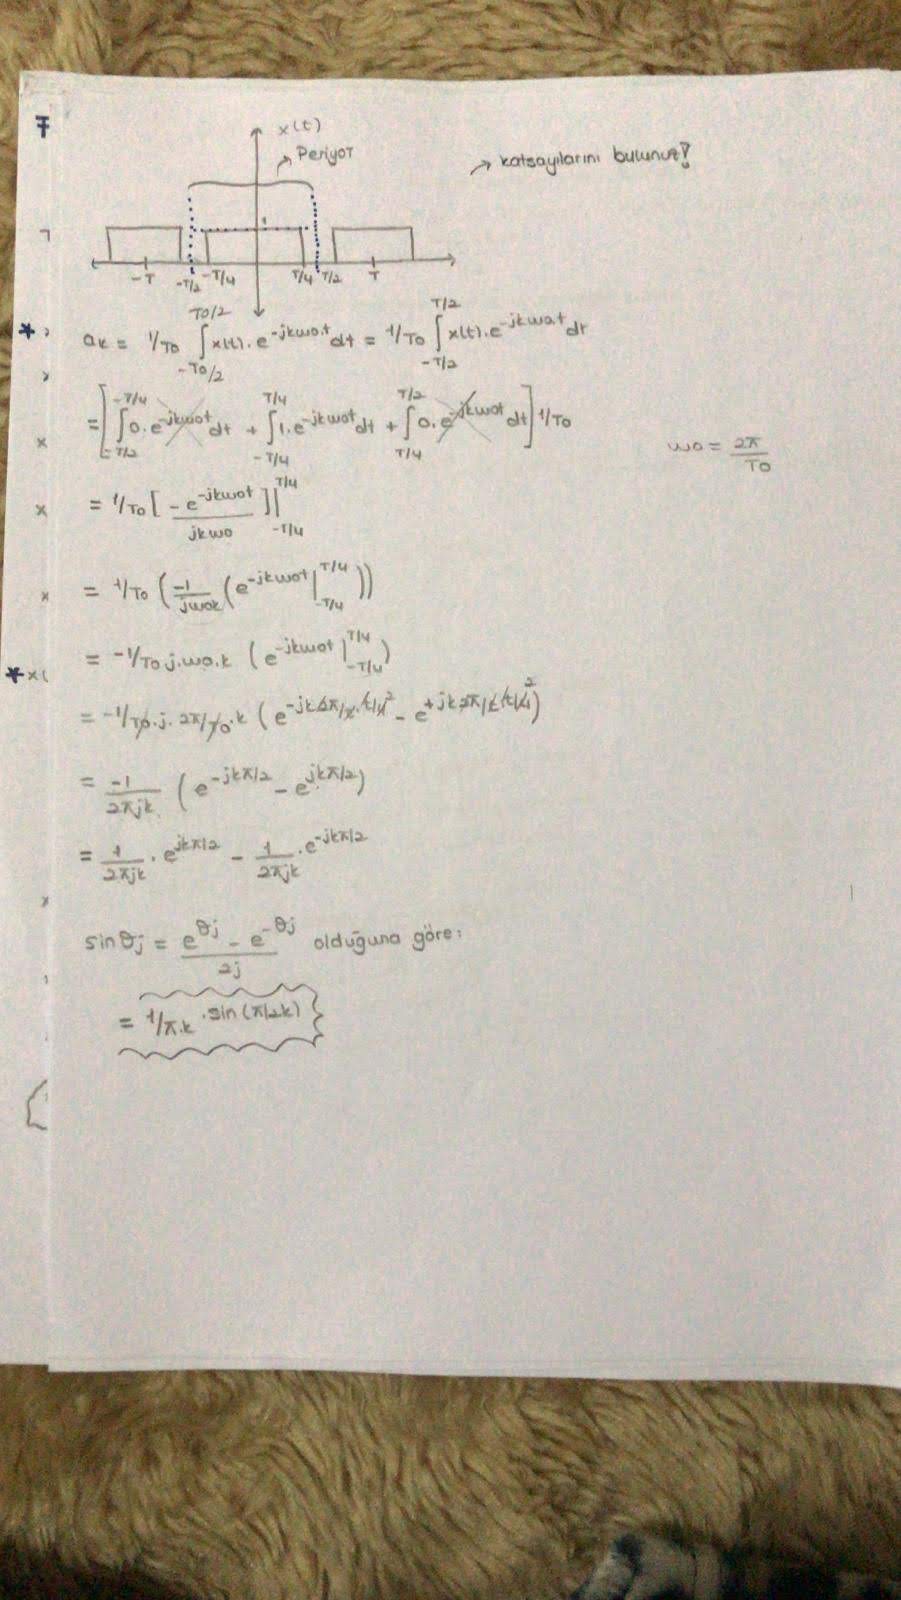 7
x(t)
→ Periyot
→ katsayılarını bulunuz?
1
-T -T/2 -T/4 T/4 T/2 T
ak = 1/T0 ∫_{-T0/2}^{T0/2} x(t).e^{-jkw0t} dt = 1/T0 ∫_{-T/2}^{T/2} x(t).e^{-jkw0t} dt
= [∫_{-T/2}^{-T/4} 0.e^{-jkw0t} dt + ∫_{-T/4}^{T/4} 1.e^{-jkw0t} dt + ∫_{T/4}^{T/2} 0.e^{-jkw0t} dt] 1/T0
w0 = 2π/T0
= 1/T0 [-e^{-jkw0t}/jkw0]|_{-T/4}^{T/4}
= 1/T0 (-1/jw0k (e^{-jkw0t}|_{-T/4}^{T/4}))
= -1/T0 j.w0.k (e^{-jkw0t}|_{-T/4}^{T/4})
= -1/T0.j.2π/T0.k (e^{-jk2π/t.t/4} - e^{+jk2π/t.t/4})
= -1/2πjk (e^{-jkπ/2} - e^{jkπ/2})
= 1/2πjk . e^{jkπ/2} - 1/2πjk . e^{-jkπ/2}
sinθj = e^{θj} - e^{-θj}/2j olduğuna göre:
= 1/π.k . sin(π/2k)